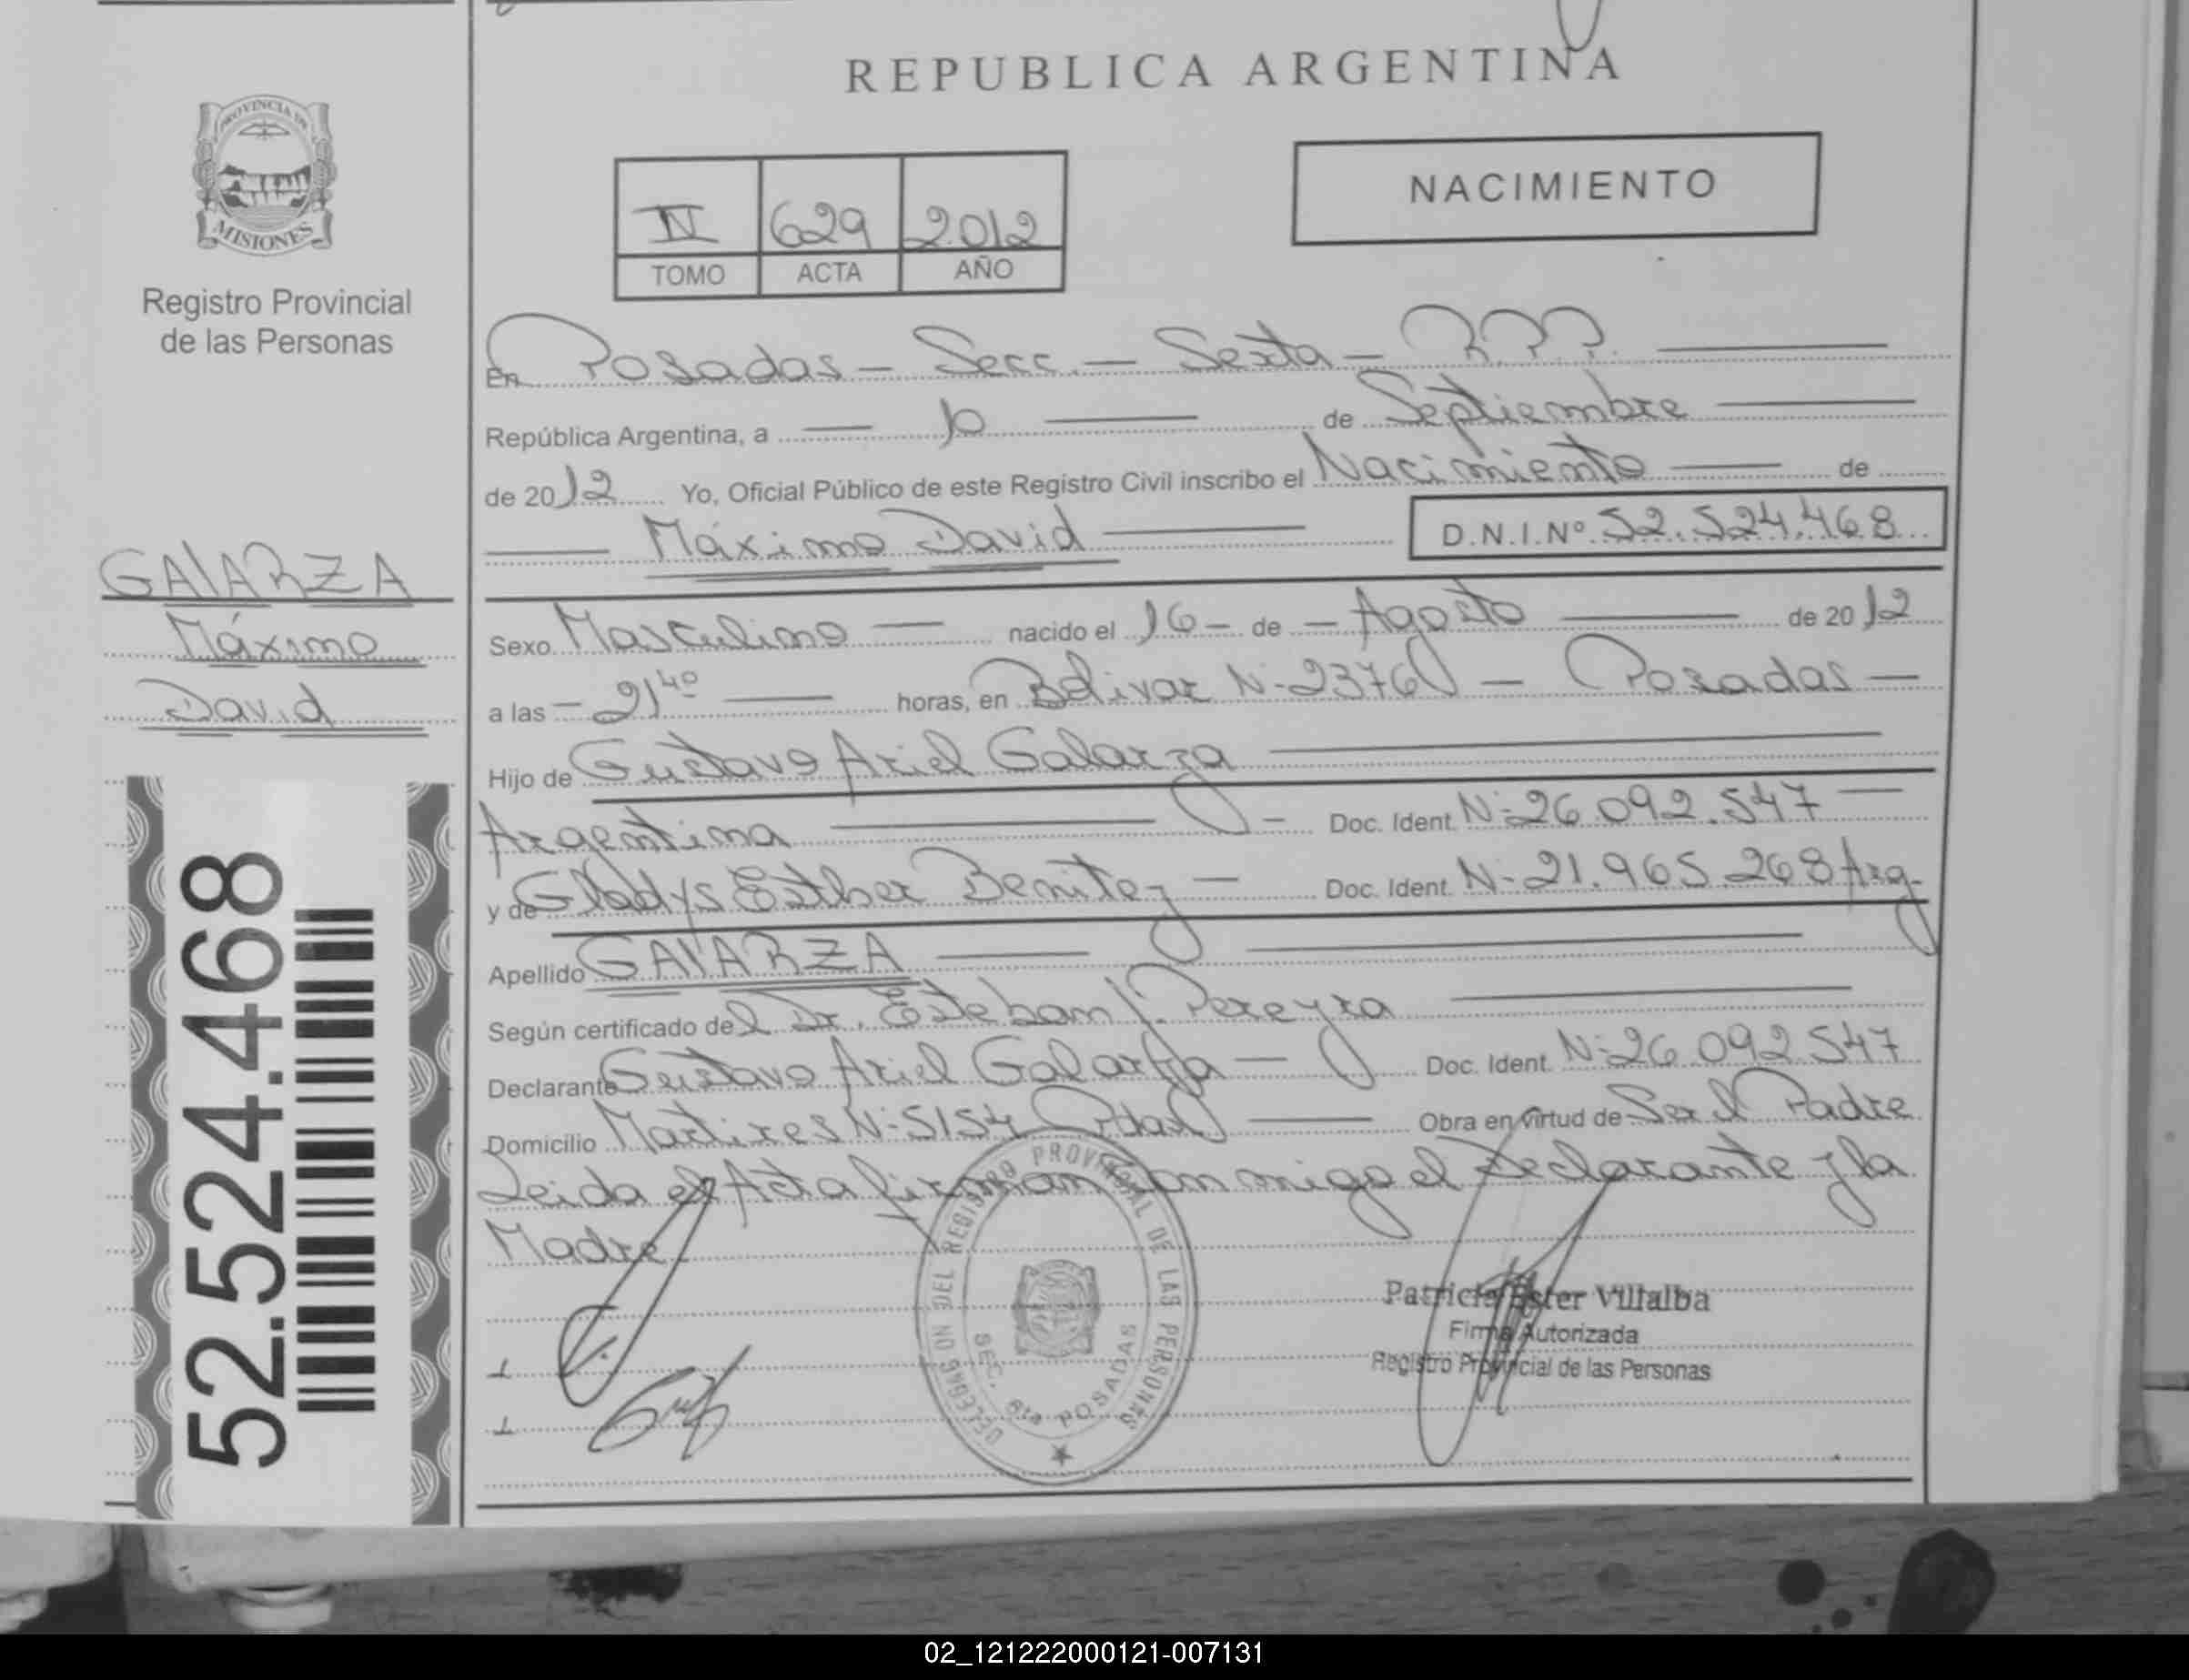 REPUBLICA ARGENTINA
PROVINCIA DE
MISIONES
Registro Provincial
de las Personas
NACIMIENTO
IV 629 2012
TOMO ACTA AÑO
En Posadas - Secc. - Sexta - R.P.P.
República Argentina, a 10 de Septiembre
de 2012 Yo, Oficial Público de este Registro Civil inscribo el Nacimiento de
Máximo David D.N.I.Nº 52.524.468
GALARZA
Máximo
David
Sexo Masculino nacido el 16 - de - Agosto de 2012
a las - 21 40 horas, en Bolivar N- 2376 - Posadas -
Hijo de Gustavo Ariel Galarza
Argentina - Doc. Ident. Nº 26.092.547
y de Gladys Esther Benitez - Doc. Ident. N- 21.965.268 Arg.
Apellido GALARZA
Según certificado del Dr. Esteban J. Pereyra
Declarante Gustavo Ariel Galarza - Doc. Ident. Nº 26.092.547
Domicilio Martires N- 5154 Pdas Obra en virtud de Ser el Padre
Leida el Acta firman conmigo el Declarante y la
Madre.
52.524.468
DELEGACION DEL REGISTRO PROVINCIAL DE LAS PERSONAS
SEC. 6ta POSADAS
Patricia Ester Villalba
Firma Autorizada
Registro Provincial de las Personas
02_121222000121-007131